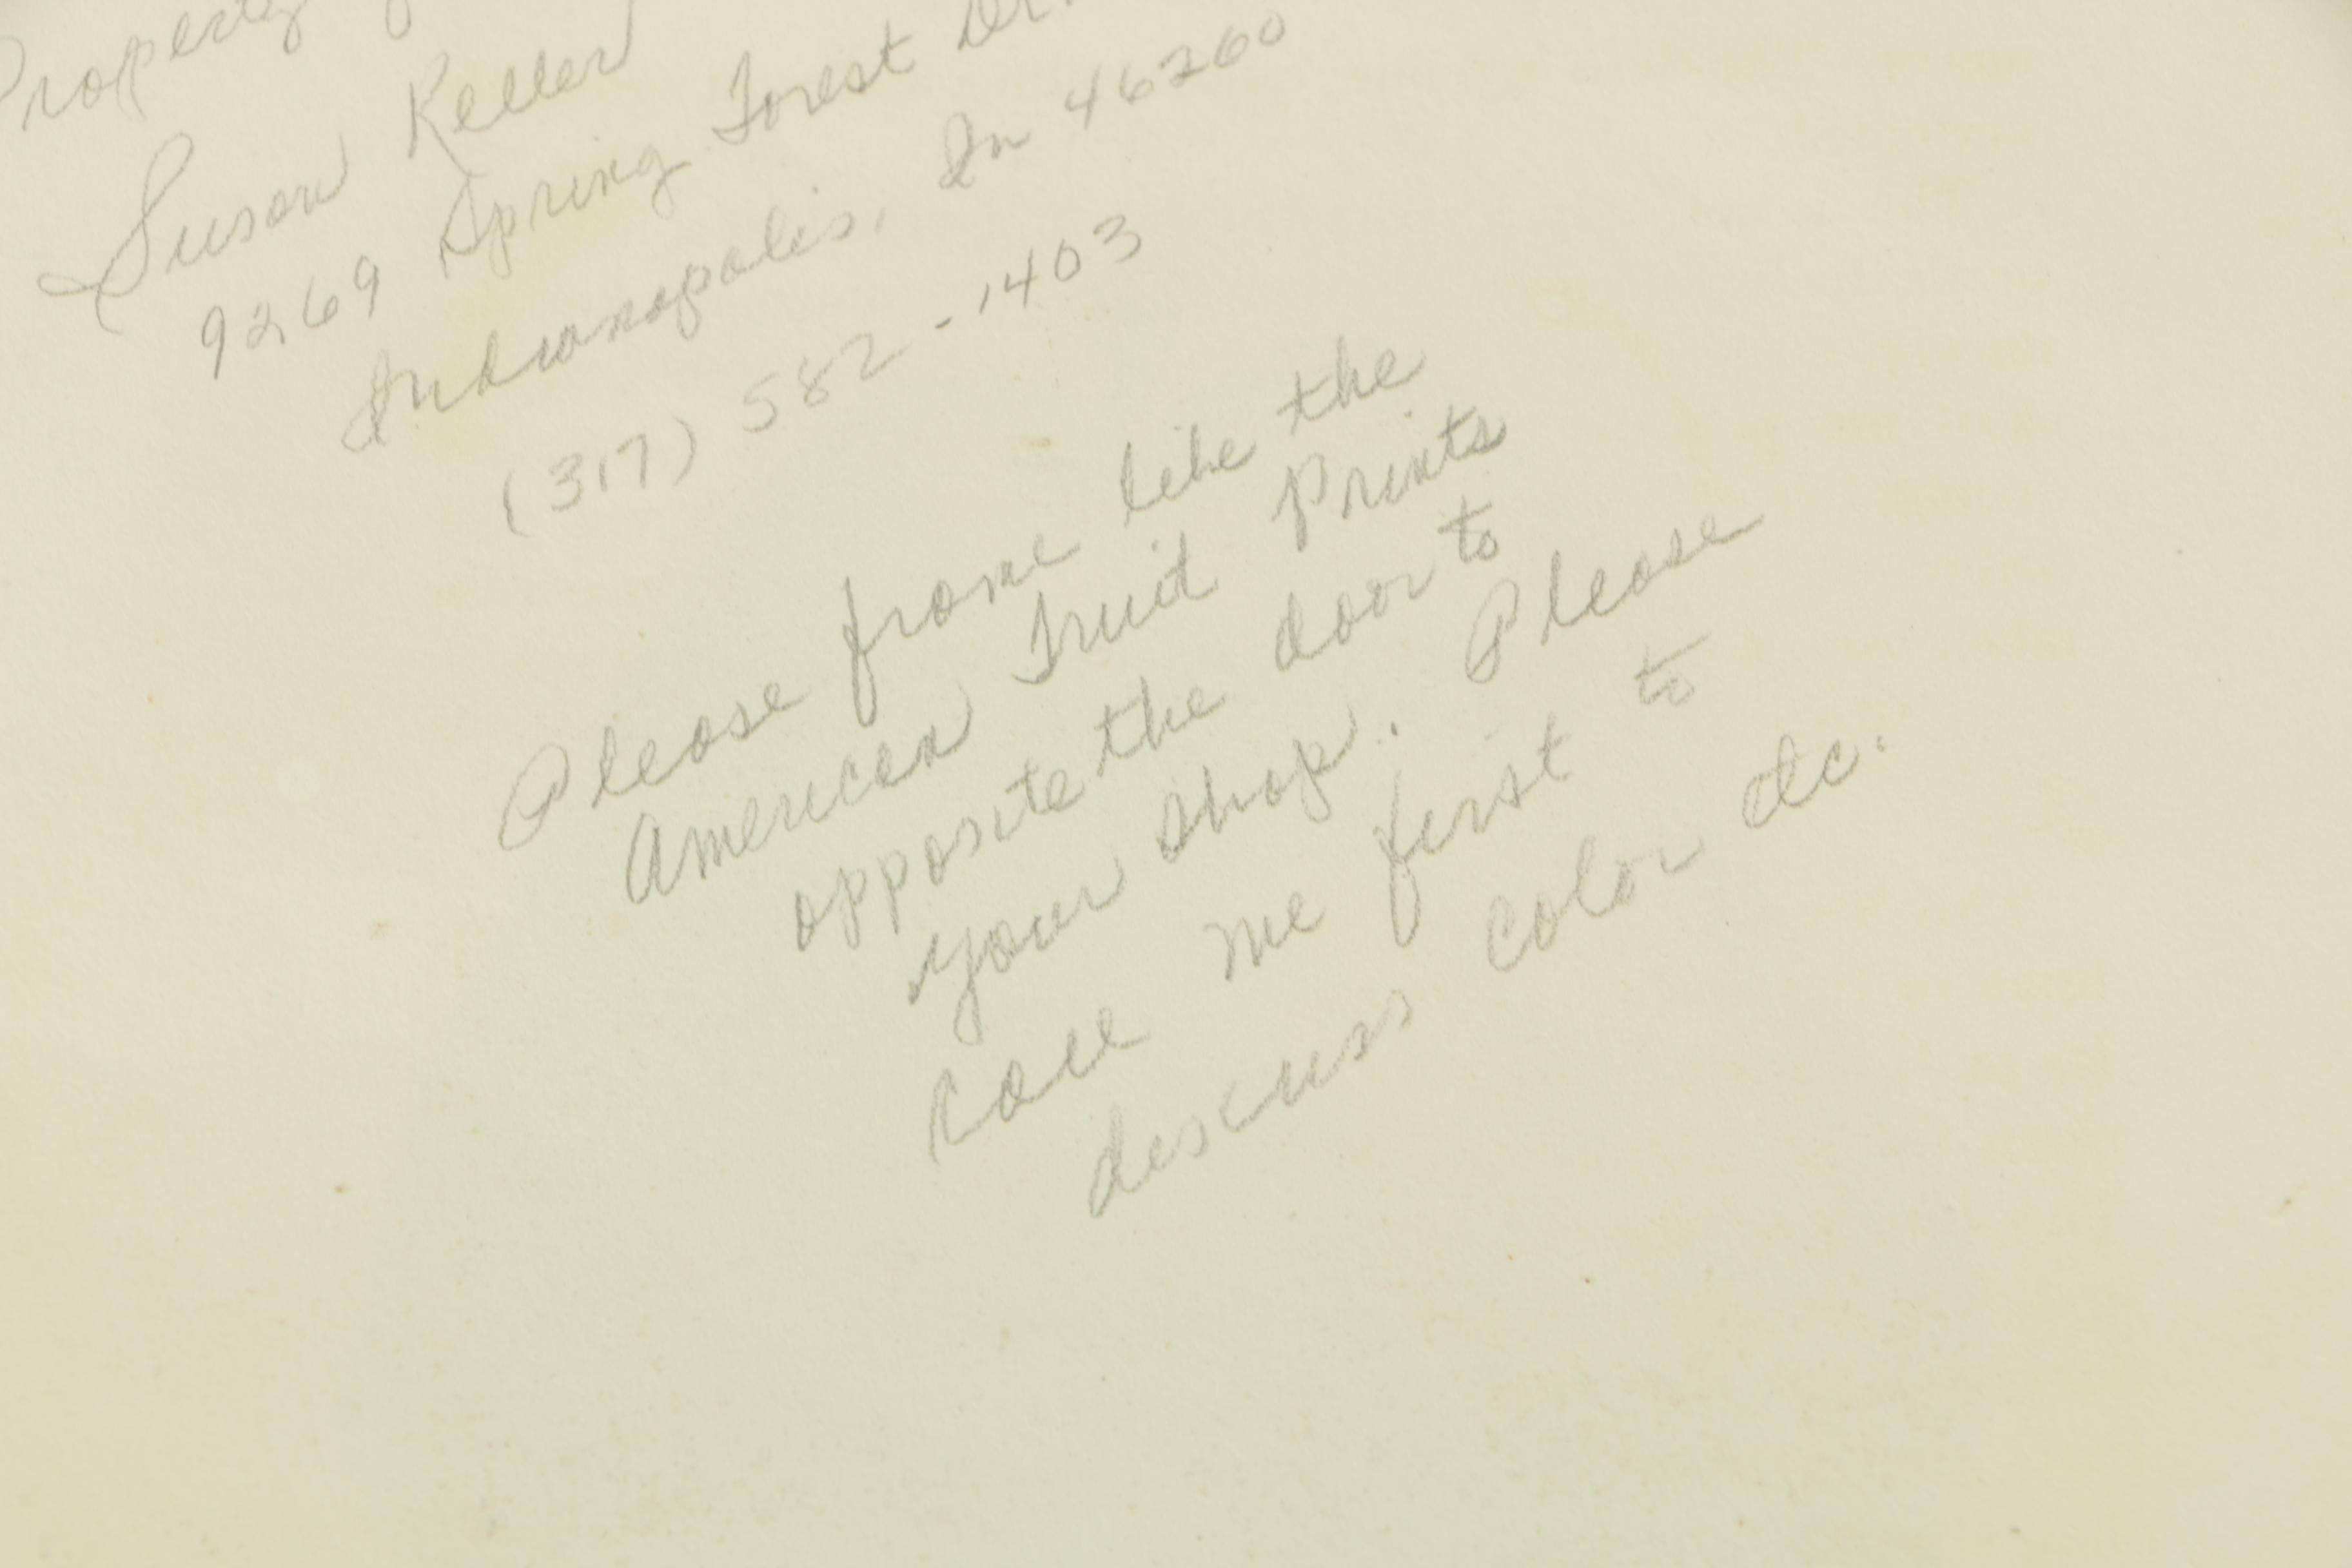 Property of
Susan Keller
9269 Spring Forest Dr.
Indianapolis, In 46260
(317) 582-1403
Please frame like the
American Fruit Prints
opposite the door to
your shop. Please
call me first to
discuss color etc.